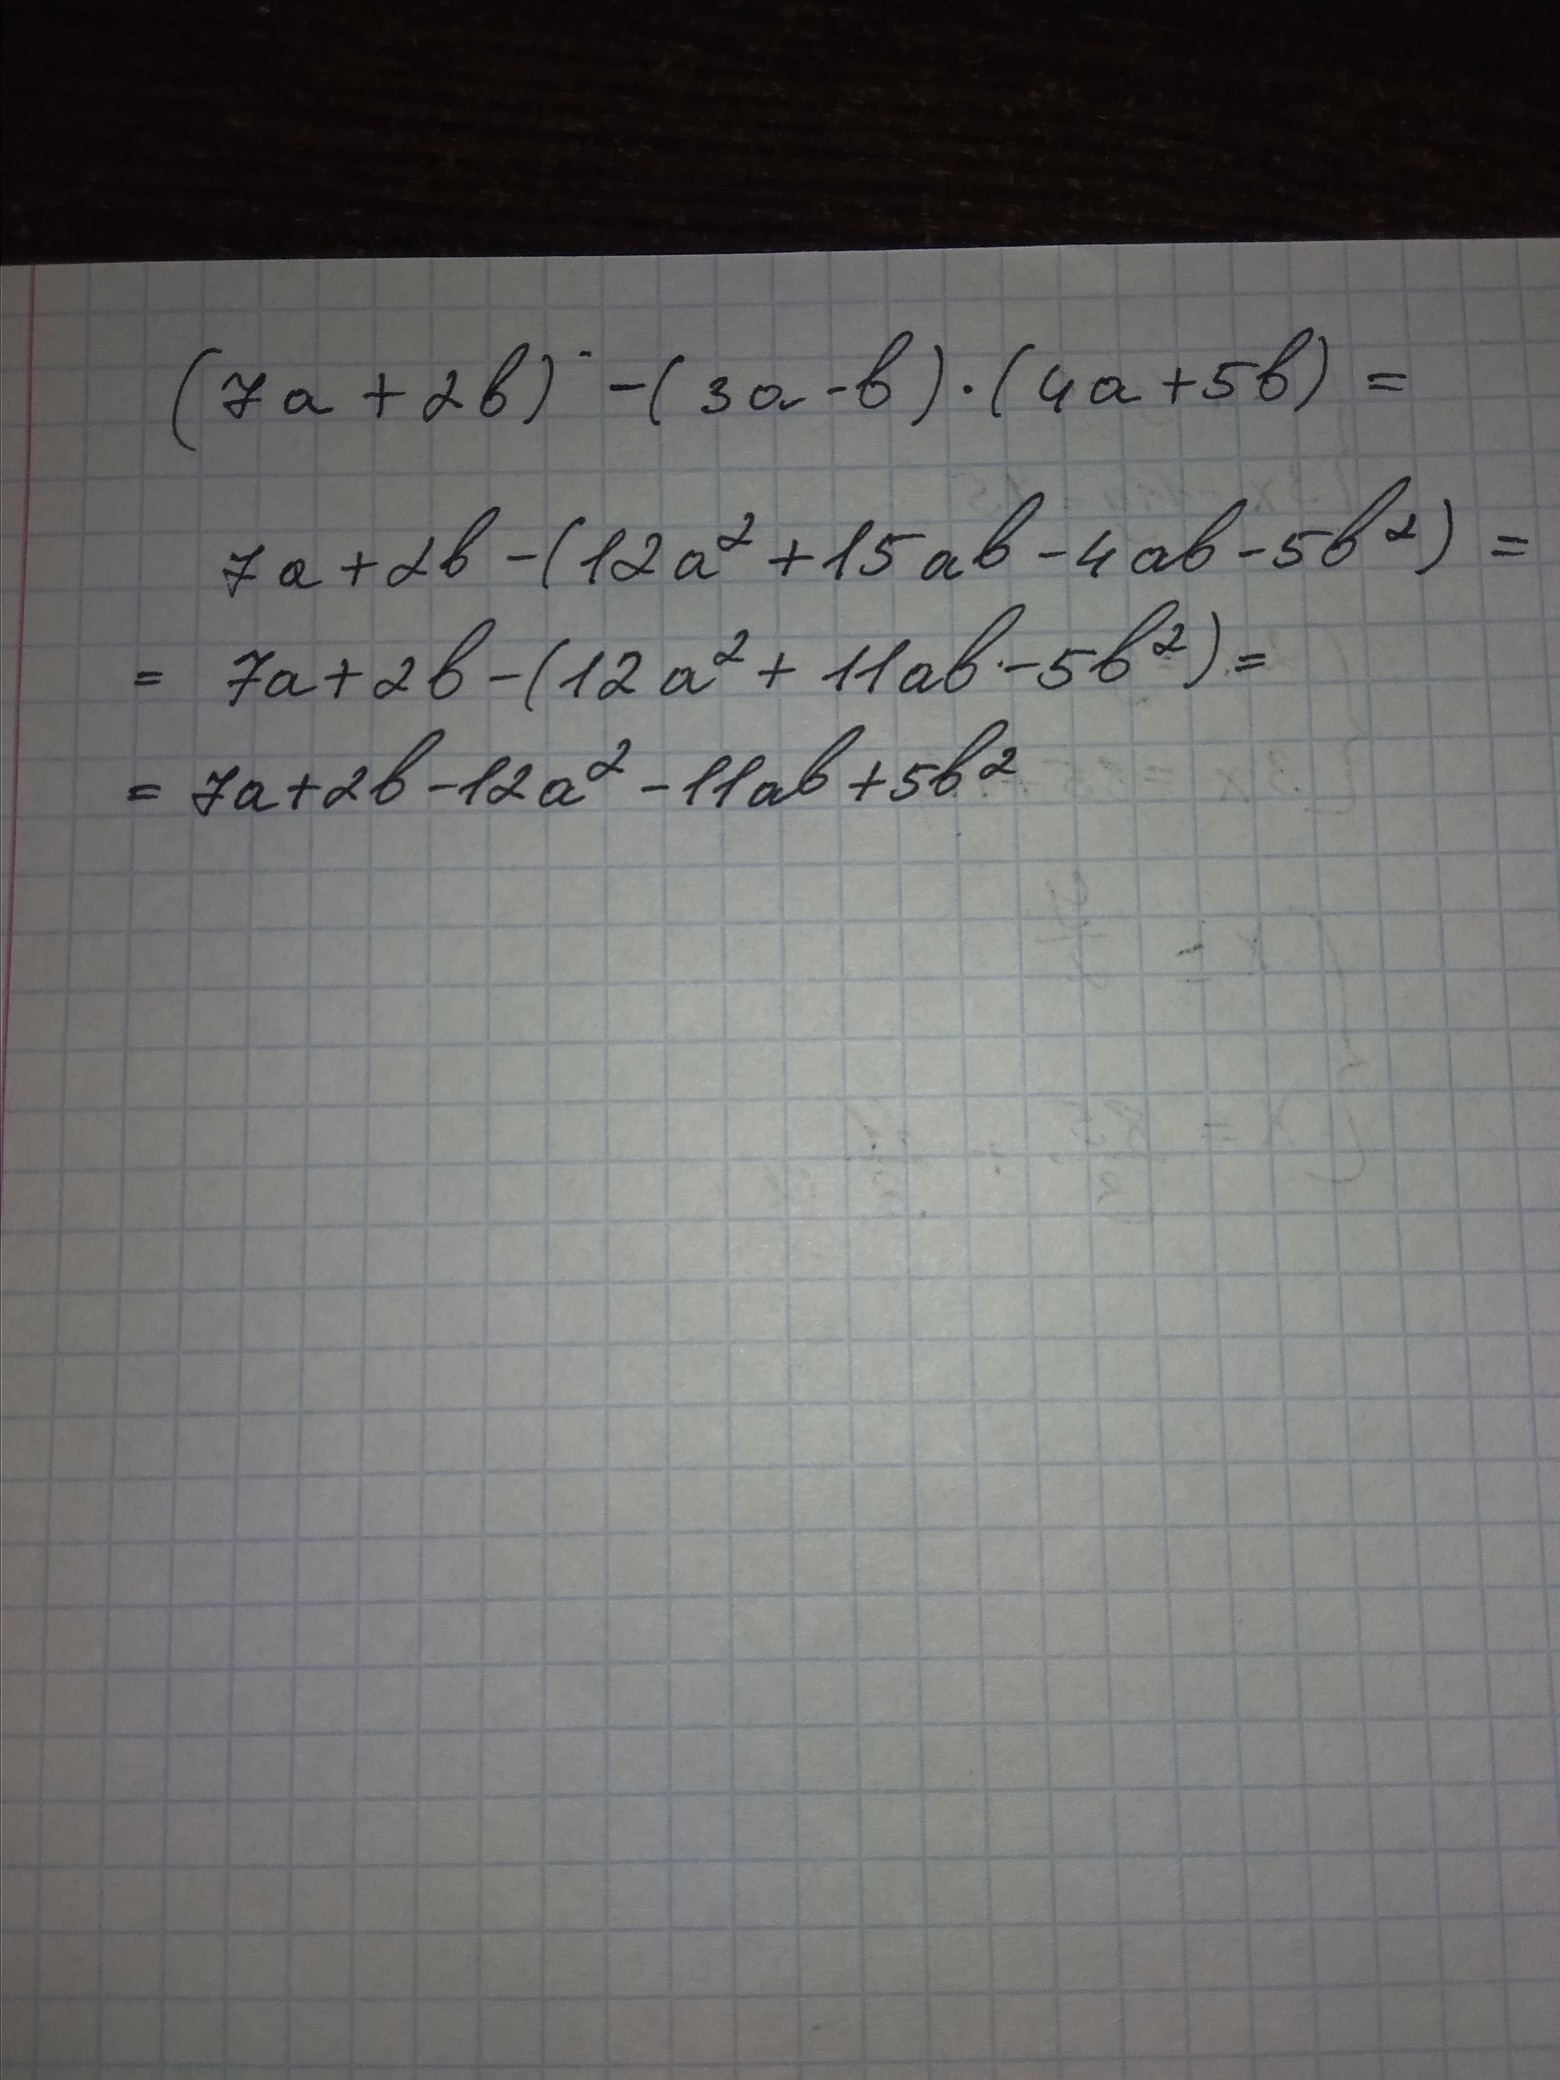 (7a + 2b) - (3a - b) · (4a + 5b) =
7a + 2b - (12a² + 15ab - 4ab - 5b²) =
= 7a + 2b - (12a² + 11ab - 5b²) =
= 7a + 2b - 12a² - 11ab + 5b²